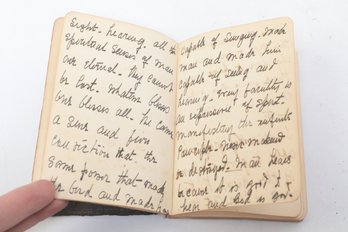 Sight, hearing, all the
spiritual senses of man
are eternal. They cannot
be lost. Whatever blesses
one blesses all.
a sure and firm
conviction that the
same power that made
the bird and made him
capable of singing made
man and made him
capable of seeing and
hearing. Every faculty is
an expression of Spirit.
manifesting the infinite
Principle.
or destroyed. Man hears
because it is good to
hear and God is good